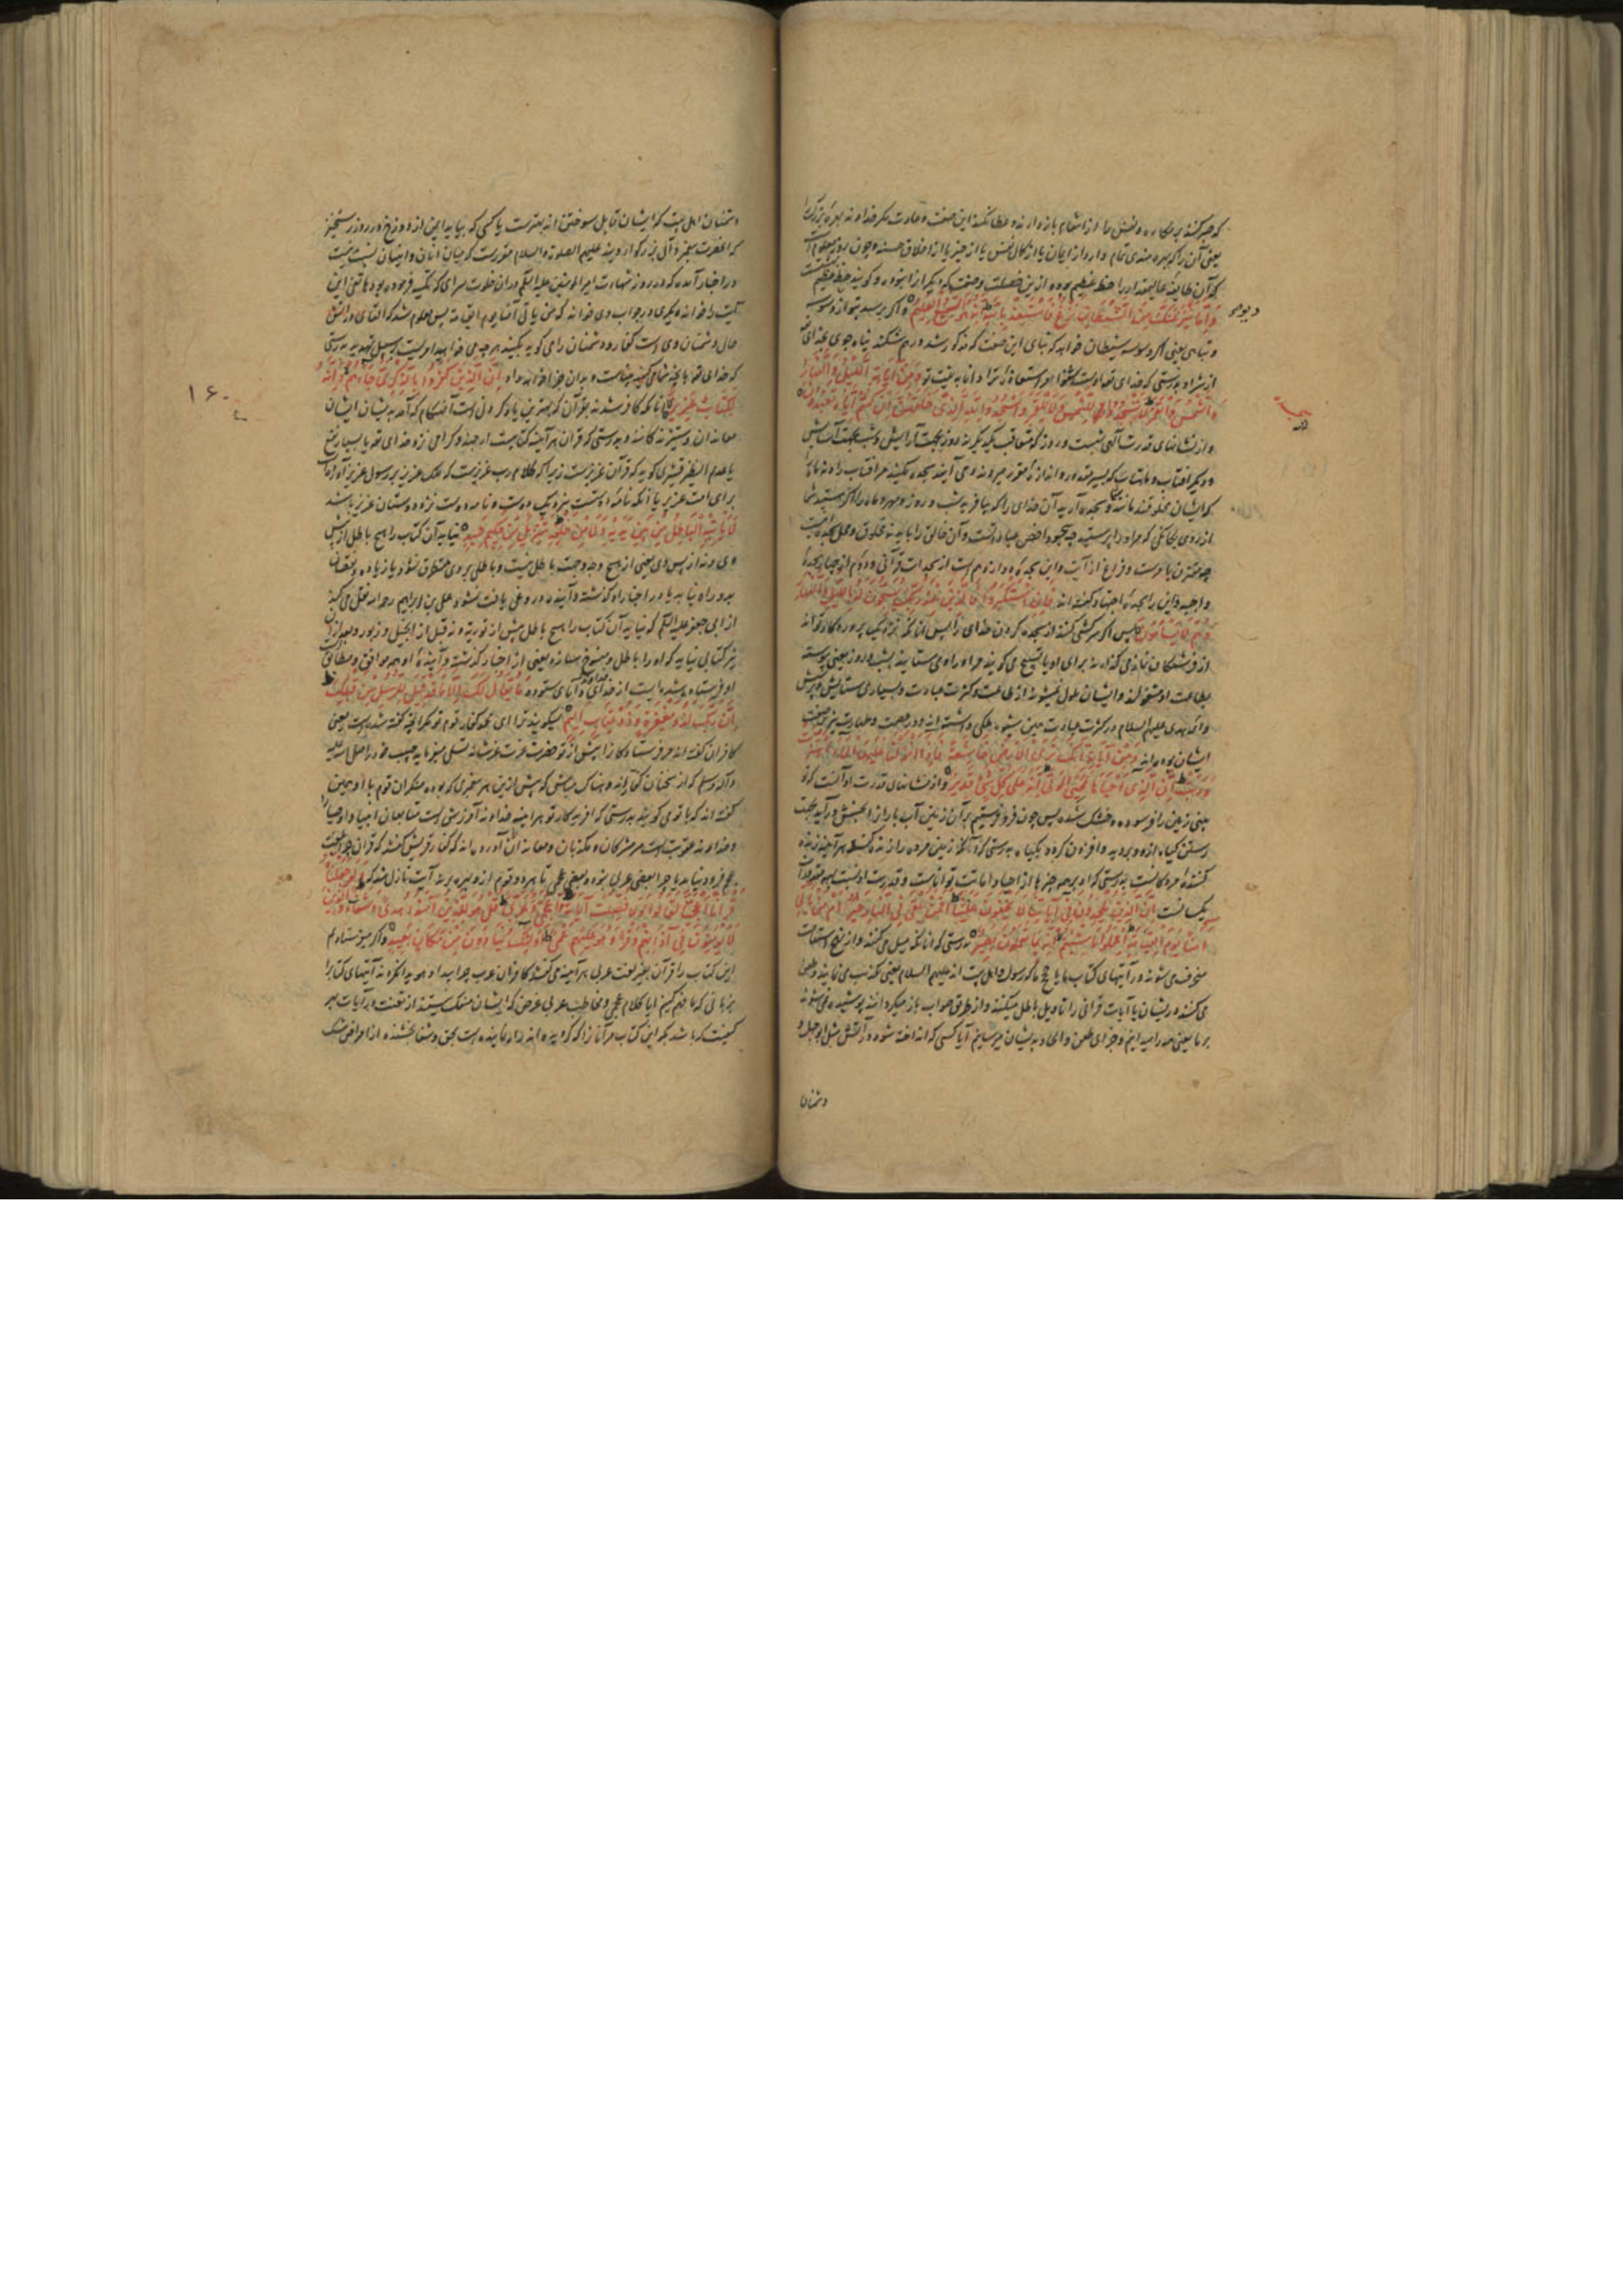 که صبر کنند بر مکاره و نفس را از انتقام باز دارند و عطا نکنند این صفت و عادت مگر خداوند بهرهٔ بزرگ را
یعنی آن را که بهره مندی تمام دارد از ایمان یا از کمال نفس یا از خیر یا از اخلاق حسنه و چون
که آن طایفه را حظ عظیم بوده ازین خصلت و صفت که دیگر از
وَإِمَّا يَنْزَغَنَّكَ مِنَ الشَّيْطَانِ نَزْغٌ فَاسْتَعِذْ بِاللَّهِ إِنَّهُ هُوَ السَّمِيعُ الْعَلِيمُ و اگر برسد بتو از وسوسه
و تباهی یعنی اگر وسوسه شیطان خواهد که تباه این صفت که مذکور شد درهم شکند پناه جوی بخدای
از شر او بدرستی که خدای اوست شنوا مر استعاذهٔ ترا دانا به نیت تو وَمِنْ آيَاتِهِ اللَّيْلُ وَالنَّهَارُ
وَالشَّمْسُ وَالْقَمَرُ لَا تَسْجُدُوا لِلشَّمْسِ وَلَا لِلْقَمَرِ وَاسْجُدُوا لِلَّهِ الَّذِي خَلَقَهُنَّ إِنْ كُنْتُمْ إِيَّاهُ تَعْبُدُونَ
و از نشانهای قدرت الهی شب و روز که متعاقب یکدیگرند روز بجهت آرایش و شب بجهت آسایش
و دیگر آفتاب و ماهتاب که بسیر مقدر و اندازهٔ مقرر میروند و می آیند سجده نکنید مر آفتاب را و نه ماه را
که ایشان مخلوقند مانند شما و سجده آرید آن خدای را که بیافرید شب و روز و مهر و ماه را اگر هستید شما
از روی یگانگی که مر او را پرستید چه سجود اخص عبادتست و آن خالق را باید نه مخلوق و محل سجده
و فراغ از آیت و این سجده یازدهم است از سجدات قرآنی
واجبه و این را سجدهٔ اجتهاد گفته اند فَإِنِ اسْتَكْبَرُوا فَالَّذِينَ عِنْدَ رَبِّكَ يُسَبِّحُونَ لَهُ بِاللَّيْلِ وَالنَّهَارِ
وَهُمْ لَا يَسْأَمُونَ پس اگر سرکشی کنند از سجده کردن خدای را پس آنانکه نزدیک پروردگار تواند
از فرشتگان نماز می گذارند برای او یا تسبیح می گویند مر او را و می ستایند بشب و روز یعنی پیوسته
بطاعت او مشغولند و ایشان ملول نمیشوند از طاعت و کثرت عبادت و بسیاری ستایش و پرستش
و ائمه هدی علیهم السلام در کثرت عبادت
ایشان بوده اند وَمِنْ آيَاتِهِ أَنَّكَ تَرَى الْأَرْضَ خَاشِعَةً فَإِذَا أَنْزَلْنَا عَلَيْهَا الْمَاءَ اهْتَزَّتْ
وَرَبَتْ إِنَّ الَّذِي أَحْيَاهَا لَمُحْيِي الْمَوْتَى إِنَّهُ عَلَى كُلِّ شَيْءٍ قَدِيرٌ و از نشانهای قدرت او آنست که تو
بینی زمین را فرسوده و خشک شده پس چون فرو فرستیم بر آن زمین آب باران را بجنبش درآید بجهت
رستن گیاه از و و بردمد و افزون گردد بگیاه بدرستی که آنکه زمین مرده را زنده کند هر آینه زنده
کنندهٔ مردگانست بدرستی که او بر همه چیزها از احیا و اماتت تواناست و قدرت او نسبت بهمه مقدورات
یکسانست إِنَّ الَّذِينَ يُلْحِدُونَ فِي آيَاتِنَا لَا يَخْفَوْنَ عَلَيْنَا أَفَمَنْ يُلْقَى فِي النَّارِ خَيْرٌ أَمْ مَنْ يَأْتِي
آمِنًا يَوْمَ الْقِيَامَةِ اعْمَلُوا مَا شِئْتُمْ إِنَّهُ بِمَا تَعْمَلُونَ بَصِيرٌ بدرستی که آنانکه میل می کنند و از نهج استقامت
منحرف می شوند در آیتهای کتاب ما یا حجج ما که رسول و اهل بیت اند علیهم السلام یعنی تکذیب می نمایند و طعن
می کنند در ایشان یا آیات قرآنی را تاویل باطل میکنند و از طریق صواب باز میگردانند پوشیده نمی شوند
بر ما یعنی همه را میدانیم و جزای طعن و الحاد بدیشان میرسانیم آیا کسی که انداخته شود در آتش مثل ابو جهل و
دشمنان
دشمنان اهل بیت که ایشان قابل سوختن اند بهترست یا کسی که بیاید ایمن از دوزخ در روز رستخیز
که آنحضرت پیغمبر و آل بزرگوار ویند علیهم الصلوة والسلام مقررست که میان آنان و اینان نسبت نیست
در اخبار آمده که در روز شهادت امیر المؤمنین علیه السلام در آن خلوت سرای که تکیه فرموده بود هاتفی این
آیت را خواند و دیگری در جواب وی خواند که من یأتی آمنا یوم القیمة پس معلوم شد که القای در آتش
حال دشمنان وی است کفار و دشمنان را می گوید بکنید هر چه می خواهید امریست بر سبیل تهدید بدرستی
که خدای بآنچه شما می کنید بیناست و بدان جزا خواهد داد إِنَّ الَّذِينَ كَفَرُوا بِالذِّكْرِ لَمَّا جَاءَهُمْ وَإِنَّهُ
لَكِتَابٌ عَزِيزٌ آنانکه کافر شدند بقرآن که بهترین یاد کردن است آن هنگام که آمد بدیشان ایشان
معاندان و ستیزنده گانند و بدرستی که قرآن هر آینه کتابیست ارجمند و گرامی نزد خدای یا بسیار نفع
یا عدیم النظیر قشیری گوید که قرآن عزیزست زیرا که کلام رب عزیزست که ملک عزیز بر رسول عزیز آورده
برای امت عزیز یا آنکه نامهٔ دوستست بنزدیک دوست و نامهٔ دوست نزد دوستان عزیز باشد
لَا يَأْتِيهِ الْبَاطِلُ مِنْ بَيْنِ يَدَيْهِ وَلَا مِنْ خَلْفِهِ تَنْزِيلٌ مِنْ حَكِيمٍ حَمِيدٍ نیاید آن کتاب را هیچ باطل از پیش
وی و نه از پس وی یعنی از هیچ وجه و جهت باطل نیست و باطل بر وی متطرق نشود یا زیاده و نقصان
بدو راه نیابد یا در اخبار او گذشته و آینده دروغی یافت نشود علی بن ابراهیم رحمه الله نقل می کند
از ابی جعفر علیه السلام که نیاید آن کتاب را هیچ باطل پیش از توریة و نه قبل از انجیل و زبور و بعد ازین
نیز کتابی نیاید که او را باطل و منسوخ سازد یعنی از اخبار گذشته و آیندهٔ او همه موافق و مطابق
او فرستاده شده است از خدای دانای ستوده مَا يُقَالُ لَكَ إِلَّا مَا قَدْ قِيلَ لِلرُّسُلِ مِنْ قَبْلِكَ
إِنَّ رَبَّكَ لَذُو مَغْفِرَةٍ وَذُو عِقَابٍ أَلِيمٍ نمیگویند ترا ای محمد کفار قوم تو مگر آنچه گفته شده است یعنی
کافران گفته اند مر فرستادگان را پیش از تو حضرت عزت تسلی مینماید حبیب خود را صلی الله علیه
و آله وسلم که از سخنان کفار اندوهناک مباش که پیش ازین هر پیغمبری که بوده منکران قوم با او همین
گفته اند که با تو می گویند بدرستی که آفریدگار تو هر آینه خداوند آمرزش است متابعان انبیا و اوصیا
و خداوند عقوبت است مر مشرکان و مکذبان و معاندان آورده اند که کفار قریش گفتند که قرآن چرا بلغت
عجم فرود نیامد یا چرا بعضی عربی نبود و بعضی عجمی تا بهر دو قوم از و بهره برند آیت نازل شد که وَلَوْ جَعَلْنَاهُ
قُرْآنًا أَعْجَمِيًّا لَقَالُوا لَوْلَا فُصِّلَتْ آيَاتُهُ أَأَعْجَمِيٌّ وَعَرَبِيٌّ قُلْ هُوَ لِلَّذِينَ آمَنُوا هُدًى وَشِفَاءٌ وَالَّذِينَ
لَا يُؤْمِنُونَ فِي آذَانِهِمْ وَقْرٌ وَهُوَ عَلَيْهِمْ عَمًى أُولَئِكَ يُنَادَوْنَ مِنْ مَكَانٍ بَعِيدٍ و اگر میفرستادیم
این کتاب را قرآن بغیر لغت عربی هر آینه می گفتند کافران عرب چرا پیدا و هویدا نکرده اند آیتهای کتاب را
بزبانی که ما فهم کنیم آیا کلام عجمی و مخاطب عربی غرض که ایشان منفک نیستند از تعنت در آیات بهر
کیفیت که باشد بگو این کتاب مر آنان را که گرویده اند راه نماینده است بحق و شفا بخشنده از امراض شک
۱۶۰